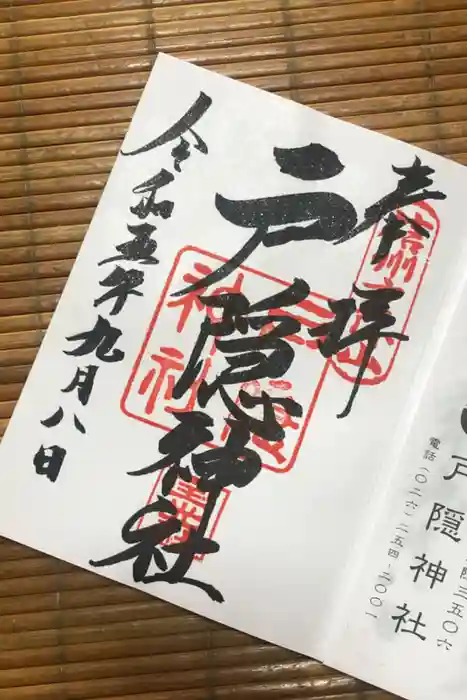 奉拝
信州
戸隠神社
戸隠神社
令和五年九月八日
三五〇六
戸隠神社
電話(〇二六)二五四-二〇〇一